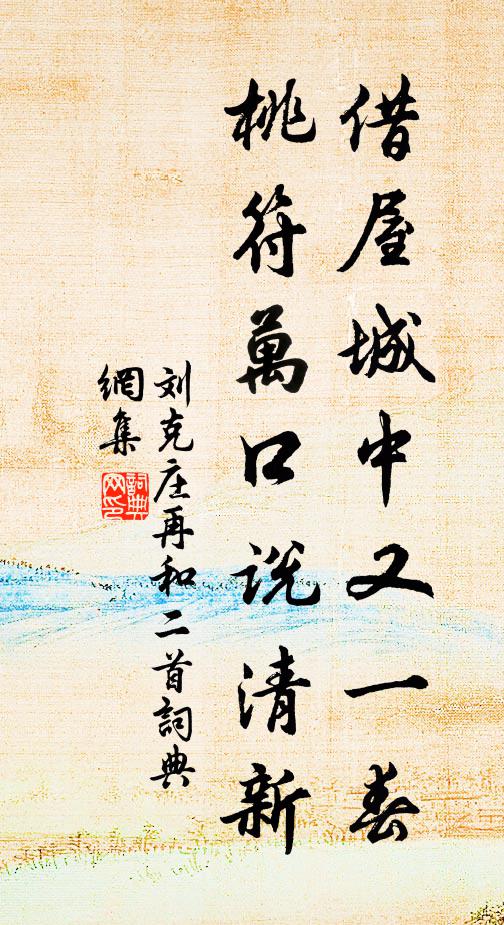 借屋城中又一春
桃符萬口説清新
刘克庄再和二首詞典
網集
詞典
网印